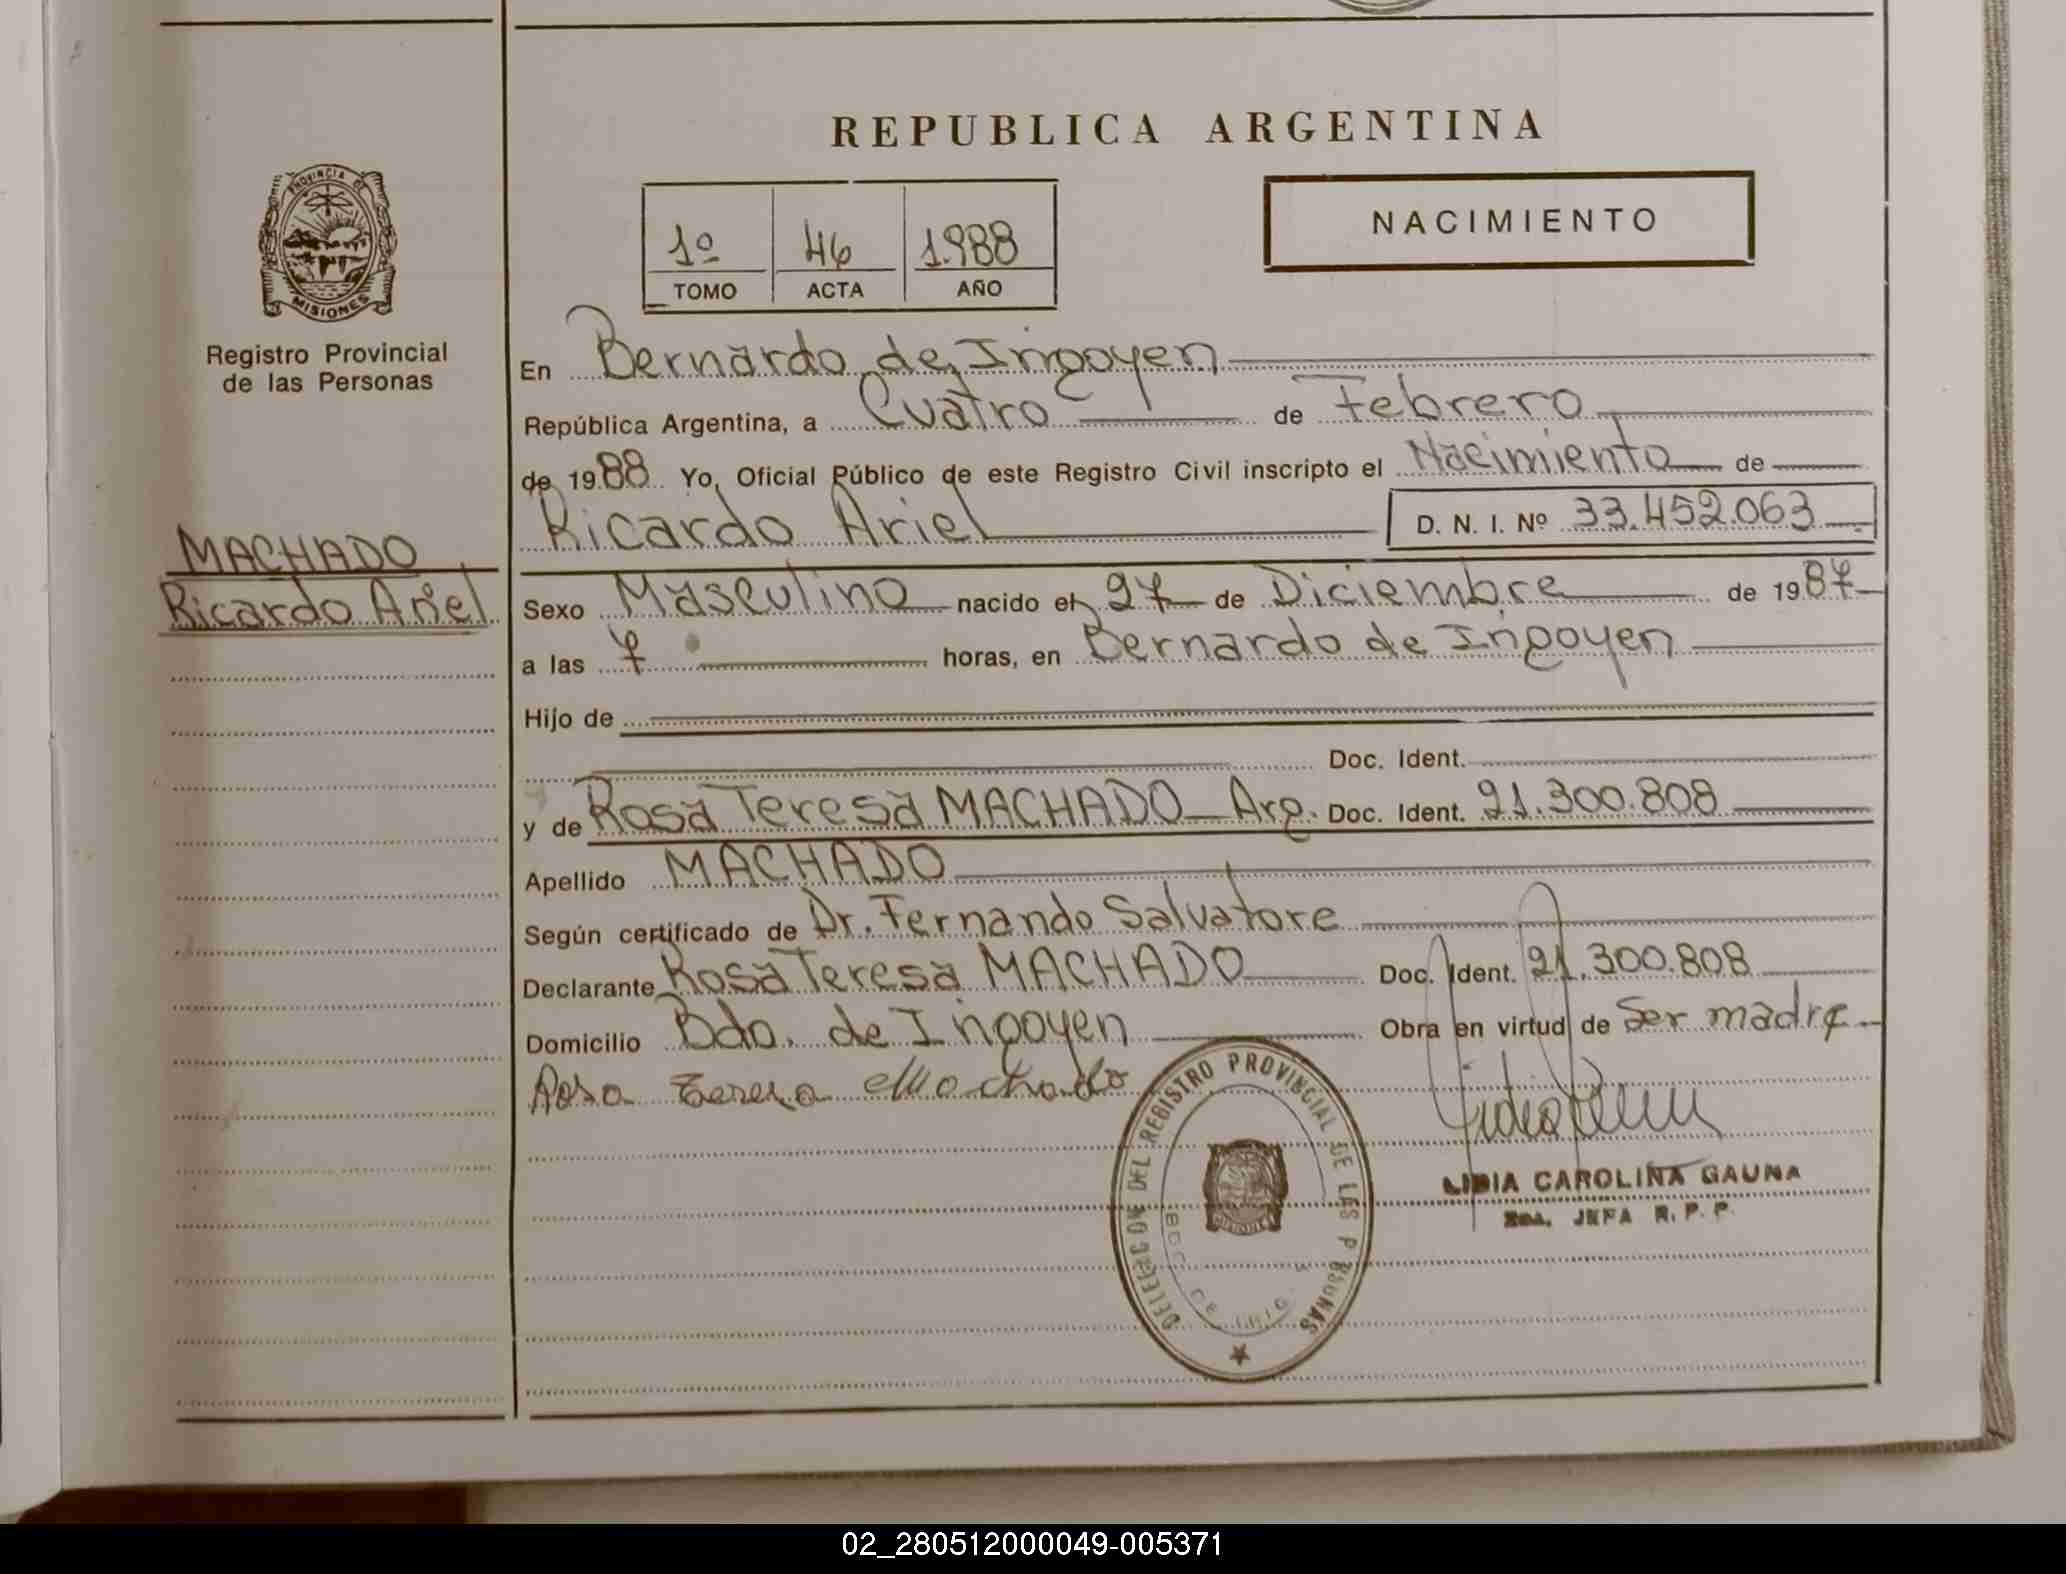 REPUBLICA ARGENTINA
PROVINCIA DE
MISIONES
Registro Provincial
de las Personas
MACHADO
Ricardo Ariel
1º 46 1.988
TOMO ACTA AÑO
NACIMIENTO
En Bernardo de Irigoyen
República Argentina, a Cuatro de Febrero
de 1988 Yo, Oficial Público de este Registro Civil inscripto el Nacimiento de
Ricardo Ariel D. N. I. Nº 33.452.063
Sexo Masculino nacido el 27 de Diciembre de 1987
a las 7 horas, en Bernardo de Irigoyen
Hijo de
Doc. Ident.
y de Rosa Teresa MACHADO Arg. Doc. Ident. 21.300.808
Apellido MACHADO
Según certificado de Dr. Fernando Salvatore
Declarante Rosa Teresa MACHADO Doc. Ident. 21.300.808
Domicilio Bdo. de Irigoyen Obra en virtud de Ser madre
Rosa Teresa Machado
DELEGACION DEL REGISTRO PROVINCIAL DE LAS PERSONAS
LIDIA CAROLINA GAUNA
JEFA R. P. P.
02_280512000049-005371